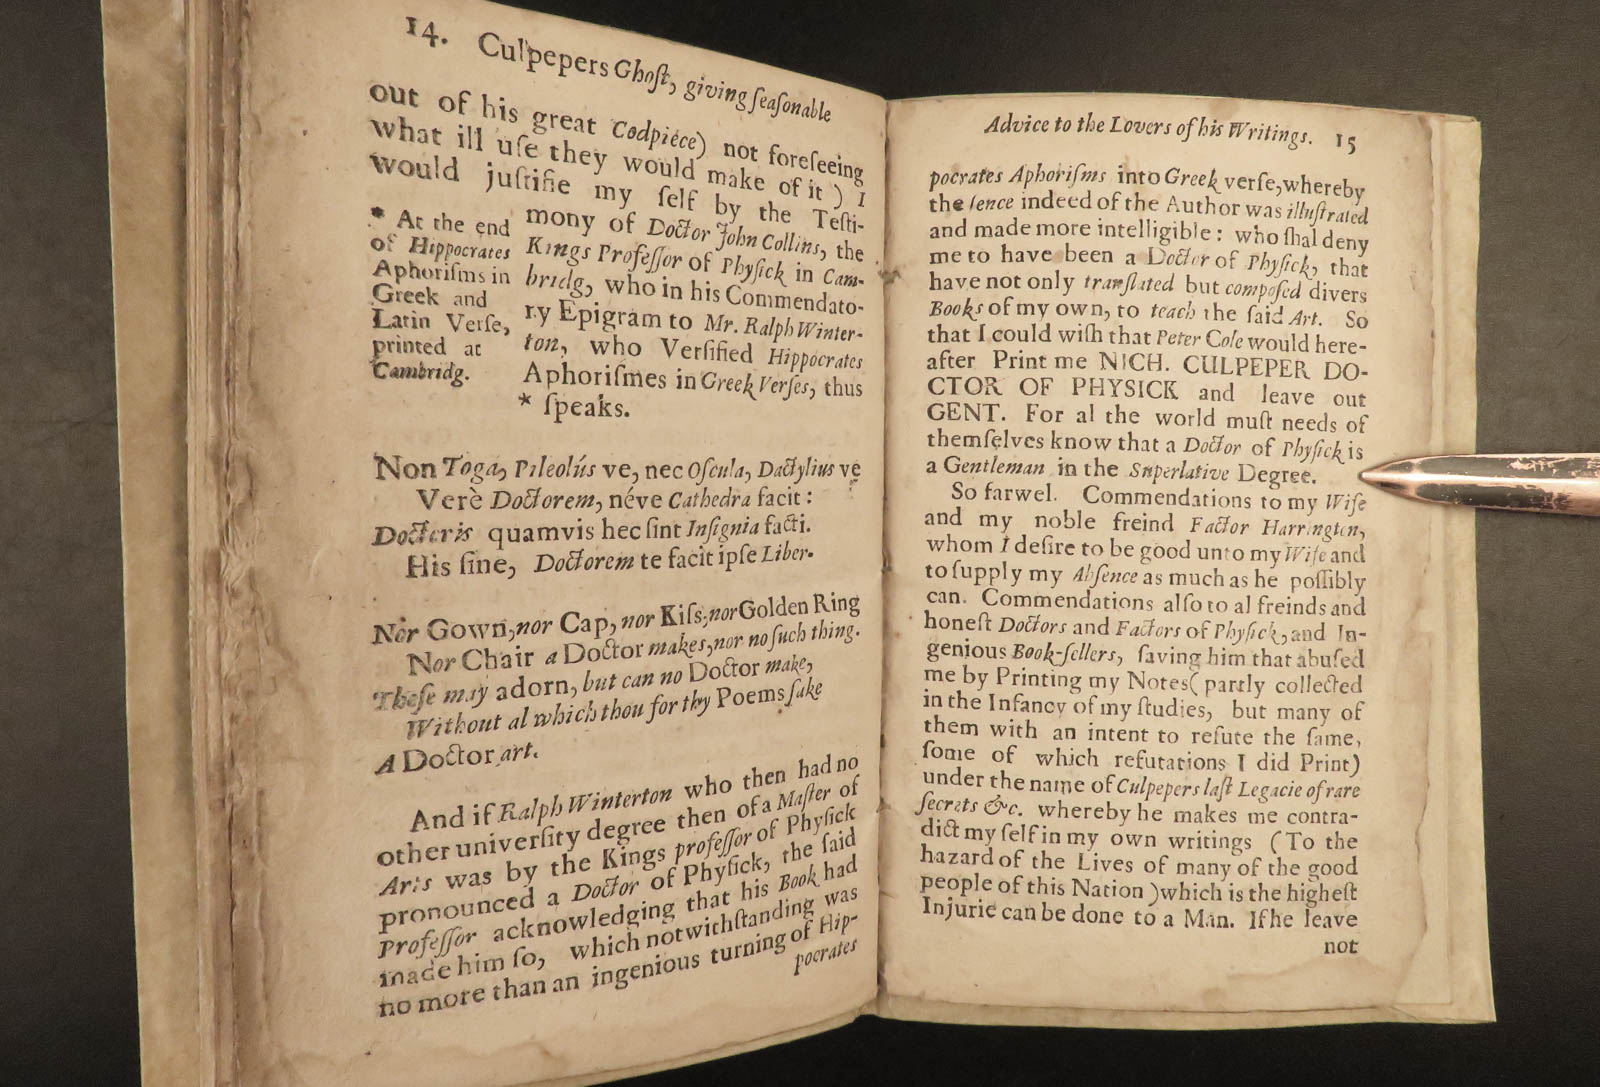 14. Culpepers Ghoſt, giving ſeaſonable
out of his great Codpiece) not foreſeeing
what ill uſe they would make of it ) I
would juſtifie my ſelf by the Teſti-
mony of Doctor John Collins, the
Kings Profeſſor of Phyſick in Cam-
bridg, who in his Commendato-
ry Epigram to Mr. Ralph Winter-
ton, who Verſified Hippocrates
Aphoriſmes in Greek Verſes, thus
* ſpeaks.
* At the end
of Hippocrates
Aphoriſms in
Greek and
Latin Verſe,
printed at
Cambridg.
Non Toga, Pileolús ve, nec Oſcula, Dactylius ve
Verè Doctorem, néve Cathedra facit :
Doctoris quamvis hec ſint Inſignia facti.
His ſine, Doctorem te facit ipſe Liber.
Nor Gown, nor Cap, nor Kiſs, nor Golden Ring
Nor Chair a Doctor makes, nor no ſuch thing.
Theſe may adorn, but can no Doctor make,
Without al which thou for thy Poems ſake
A Doctor art.
And if Ralph Winterton who then had no
other univerſity degree then of a Maſter of
Arts was by the Kings profeſſor of Phyſick
pronounced a Doctor of Phyſick, the ſaid
Profeſſor acknowledging that his Book had
made him ſo, which notwithſtanding was
no more than an ingenious turning of Hip-
pocrates
Advice to the Lovers of his Writings. 15
pocrates Aphoriſms into Greek verſe, whereby
the ſence indeed of the Author was illuſtrated
and made more intelligible : who ſhal deny
me to have been a Doctor of Phyſick, that
have not only tranſlated but compoſed divers
Books of my own, to teach the ſaid Art. So
that I could wiſh that Peter Cole would here-
after Print me NICH. CULPEPER DO-
CTOR OF PHYSICK and leave out
GENT. For al the world muſt needs of
themſelves know that a Doctor of Phyſick is
a Gentleman in the Superlative Degree.
So farwel. Commendations to my Wife
and my noble freind Factor Harrington,
whom I deſire to be good unto my Wife and
to ſupply my Abſence as much as he poſſibly
can. Commendations alſo to al freinds and
honeſt Doctors and Factors of Phyſick, and In-
genious Book-ſellers, ſaving him that abuſed
me by Printing my Notes ( partly collected
in the Infancy of my ſtudies, but many of
them with an intent to refute the ſame,
ſome of which refutations I did Print)
under the name of Culpepers laſt Legacie of rare
ſecrets &c. whereby he makes me contra-
dict my ſelf in my own writings (To the
hazard of the Lives of many of the good
people of this Nation ) which is the higheſt
Injurie can be done to a Man. If he leave
not